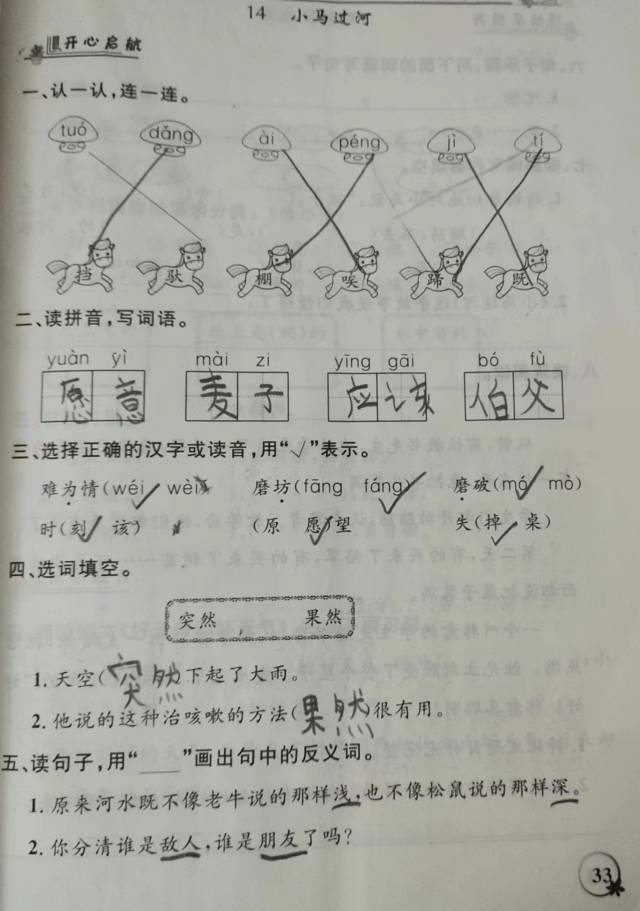 14 小马过河
开心启航
一、认一认，连一连。
tuó dǎng ài péng jì tí
挡 驮 棚 唉 蹄 既
二、读拼音，写词语。
yuàn yì mài zi yīng gāi bó fù
愿意 麦子 应该 伯父
三、选择正确的汉字或读音，用“√”表示。
难为情(wéi√ wèi) 磨坊(fāng fáng√) 磨破(mó√ mò)
时(刻√ 该) (原 愿√)望 失(掉√ 桌)
四、选词填空。
突然 果然
1. 天空(突然)下起了大雨。
2. 他说的这种治咳嗽的方法(果然)很有用。
五、读句子，用“____”画出句中的反义词。
1. 原来河水既不像老牛说的那样浅，也不像松鼠说的那样深。
2. 你分清谁是敌人，谁是朋友了吗？
33